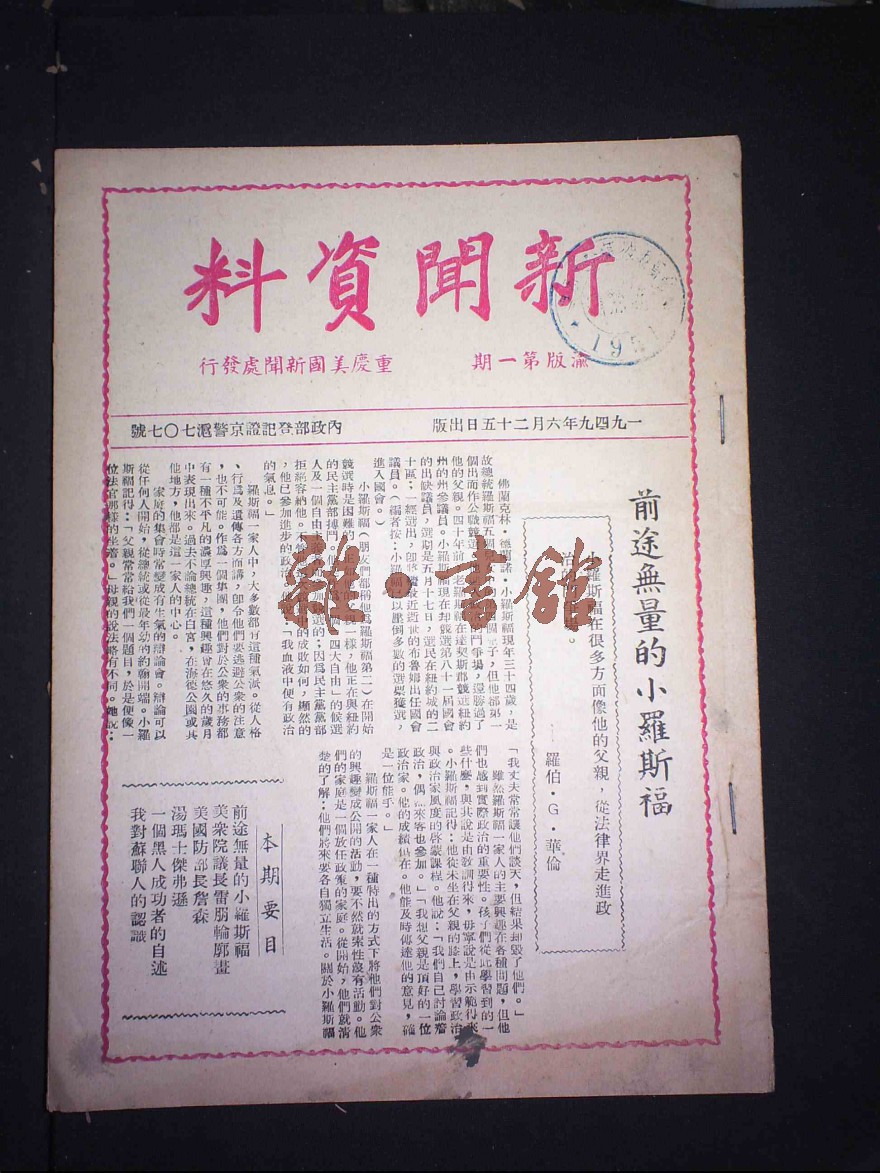 新聞資料
渝版第一期
重慶美國新聞處發行
一九四九年六月二十五日出版
內政部登記證京警滬七〇七號
前途無量的小羅斯福
小羅斯福在很多方面像他的父親，從法律界走進政
治
羅伯·G·華倫
佛蘭克林·德蘭諾·小羅斯福現年三十四歲，是
故總統羅斯福五個
他的父親。四十年前，老羅斯福在達契斯郡競選紐約
州的州參議員。小羅斯福現在却競選第八十一屆國會
的出缺議員，選期是五月十七日，選民在紐約城的二
十區：一經選出，卽
最近逝世的布魯姆出任國會
議員。（編者按：小羅斯福已以壓倒多數的選票獲選，
進入國會。）
小羅斯福（朋友們都稱他爲羅斯福第二）在開始
競選時是困難的，正
一樣，他正在與紐約
的民主黨部搏鬥。他
「四大自由」的候選
人及一個自由
加競選的；因爲民主黨部
拒絕容納他。
中的成敗如何，顯然的
，他已參加進步的政治
「我血液中便有政治
的氣息。」
羅斯福一家人中，大多數都有這種氣氛。從人格
、行爲及遺傳各方面講，卽令他們要逃避公衆的注意
，也不可能。作爲一個集團，他們對於公衆的事務都
有一種不平凡的濃厚興趣，這種興趣曾在悠久的歲月
中表現出來。過去不論總統在白宮，在海德公園或其
他地方，他都是這一家人的中心。
家庭的集會時常變成有生氣的辯論會。辯論可以
從任何人開始，從總統或從最年幼的約翰開端。小羅
斯福記得：「父親常常給我們一個題目，於是便像一
位法官那樣的坐着。」母親的說法略有不同。她說：
「我丈夫常常讓他們談天，但結果却毀了他們。」
雖然羅斯福一家人的主要興趣在各種問題，但他
們也感到實際政治的重要性。孩子們從此學習到的一
些什麼，與其說是由敎訓得來，毋寧說是由示範得來
。小羅斯福記得：他從未坐在父親的膝上，學習政治
與政治家風度的啓蒙課程。他說：「我們自己討論着
政治，偶然來客也參加。」「我想父親是頂好的一位
政治家。他的成績俱在。他能及時傳達他的意見，確
是一位能手。」
羅斯福一家人在一種特出的方式下將他們對公衆
的興趣變成公開的活動，要不然就索性沒有活動。他
們的家庭是一個放任政策的家庭。從開始，他們就淸
楚的了解：他們將來要各自獨立生活。關於小羅斯福
本期要目
前途無量的小羅斯福
美衆院議長雷朋輪廓畫
美國防部長詹森
湯瑪士傑弗遜
一個黑人成功者的自述
我對蘇聯人的認識
雜·書館